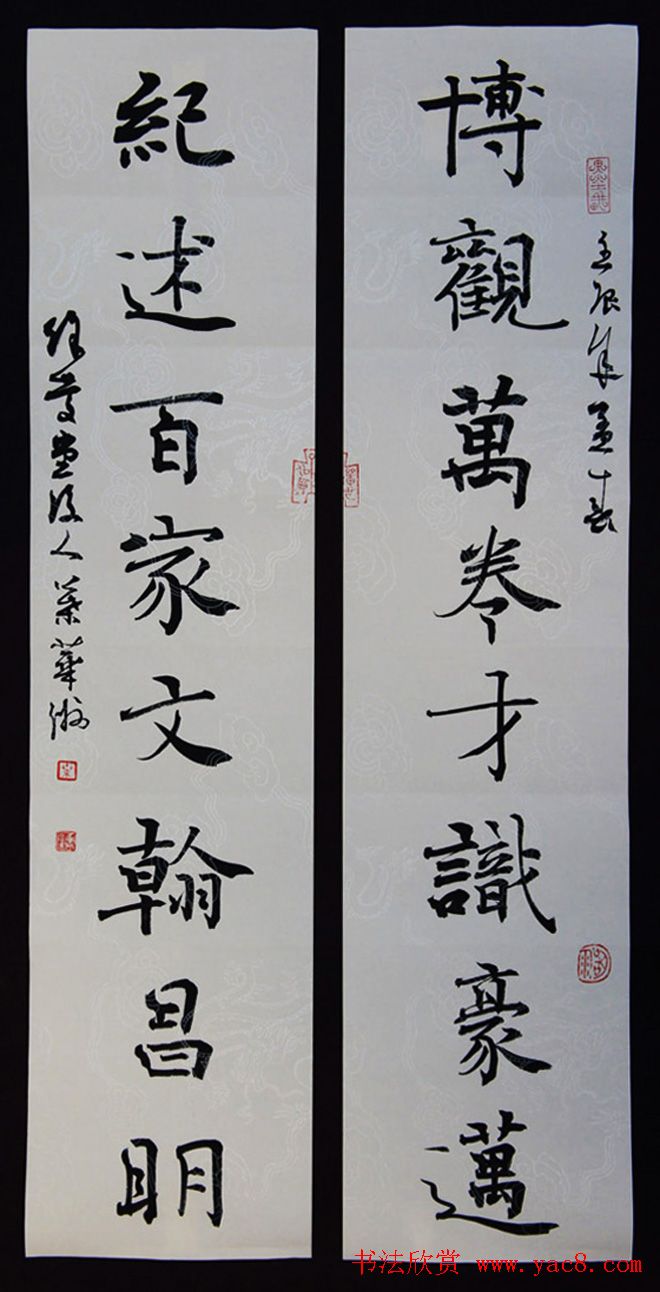 壬辰年孟春
博觀萬卷才識豪邁
紀述百家文翰昌明
後人葉華
书法欣赏 www.yac8.com